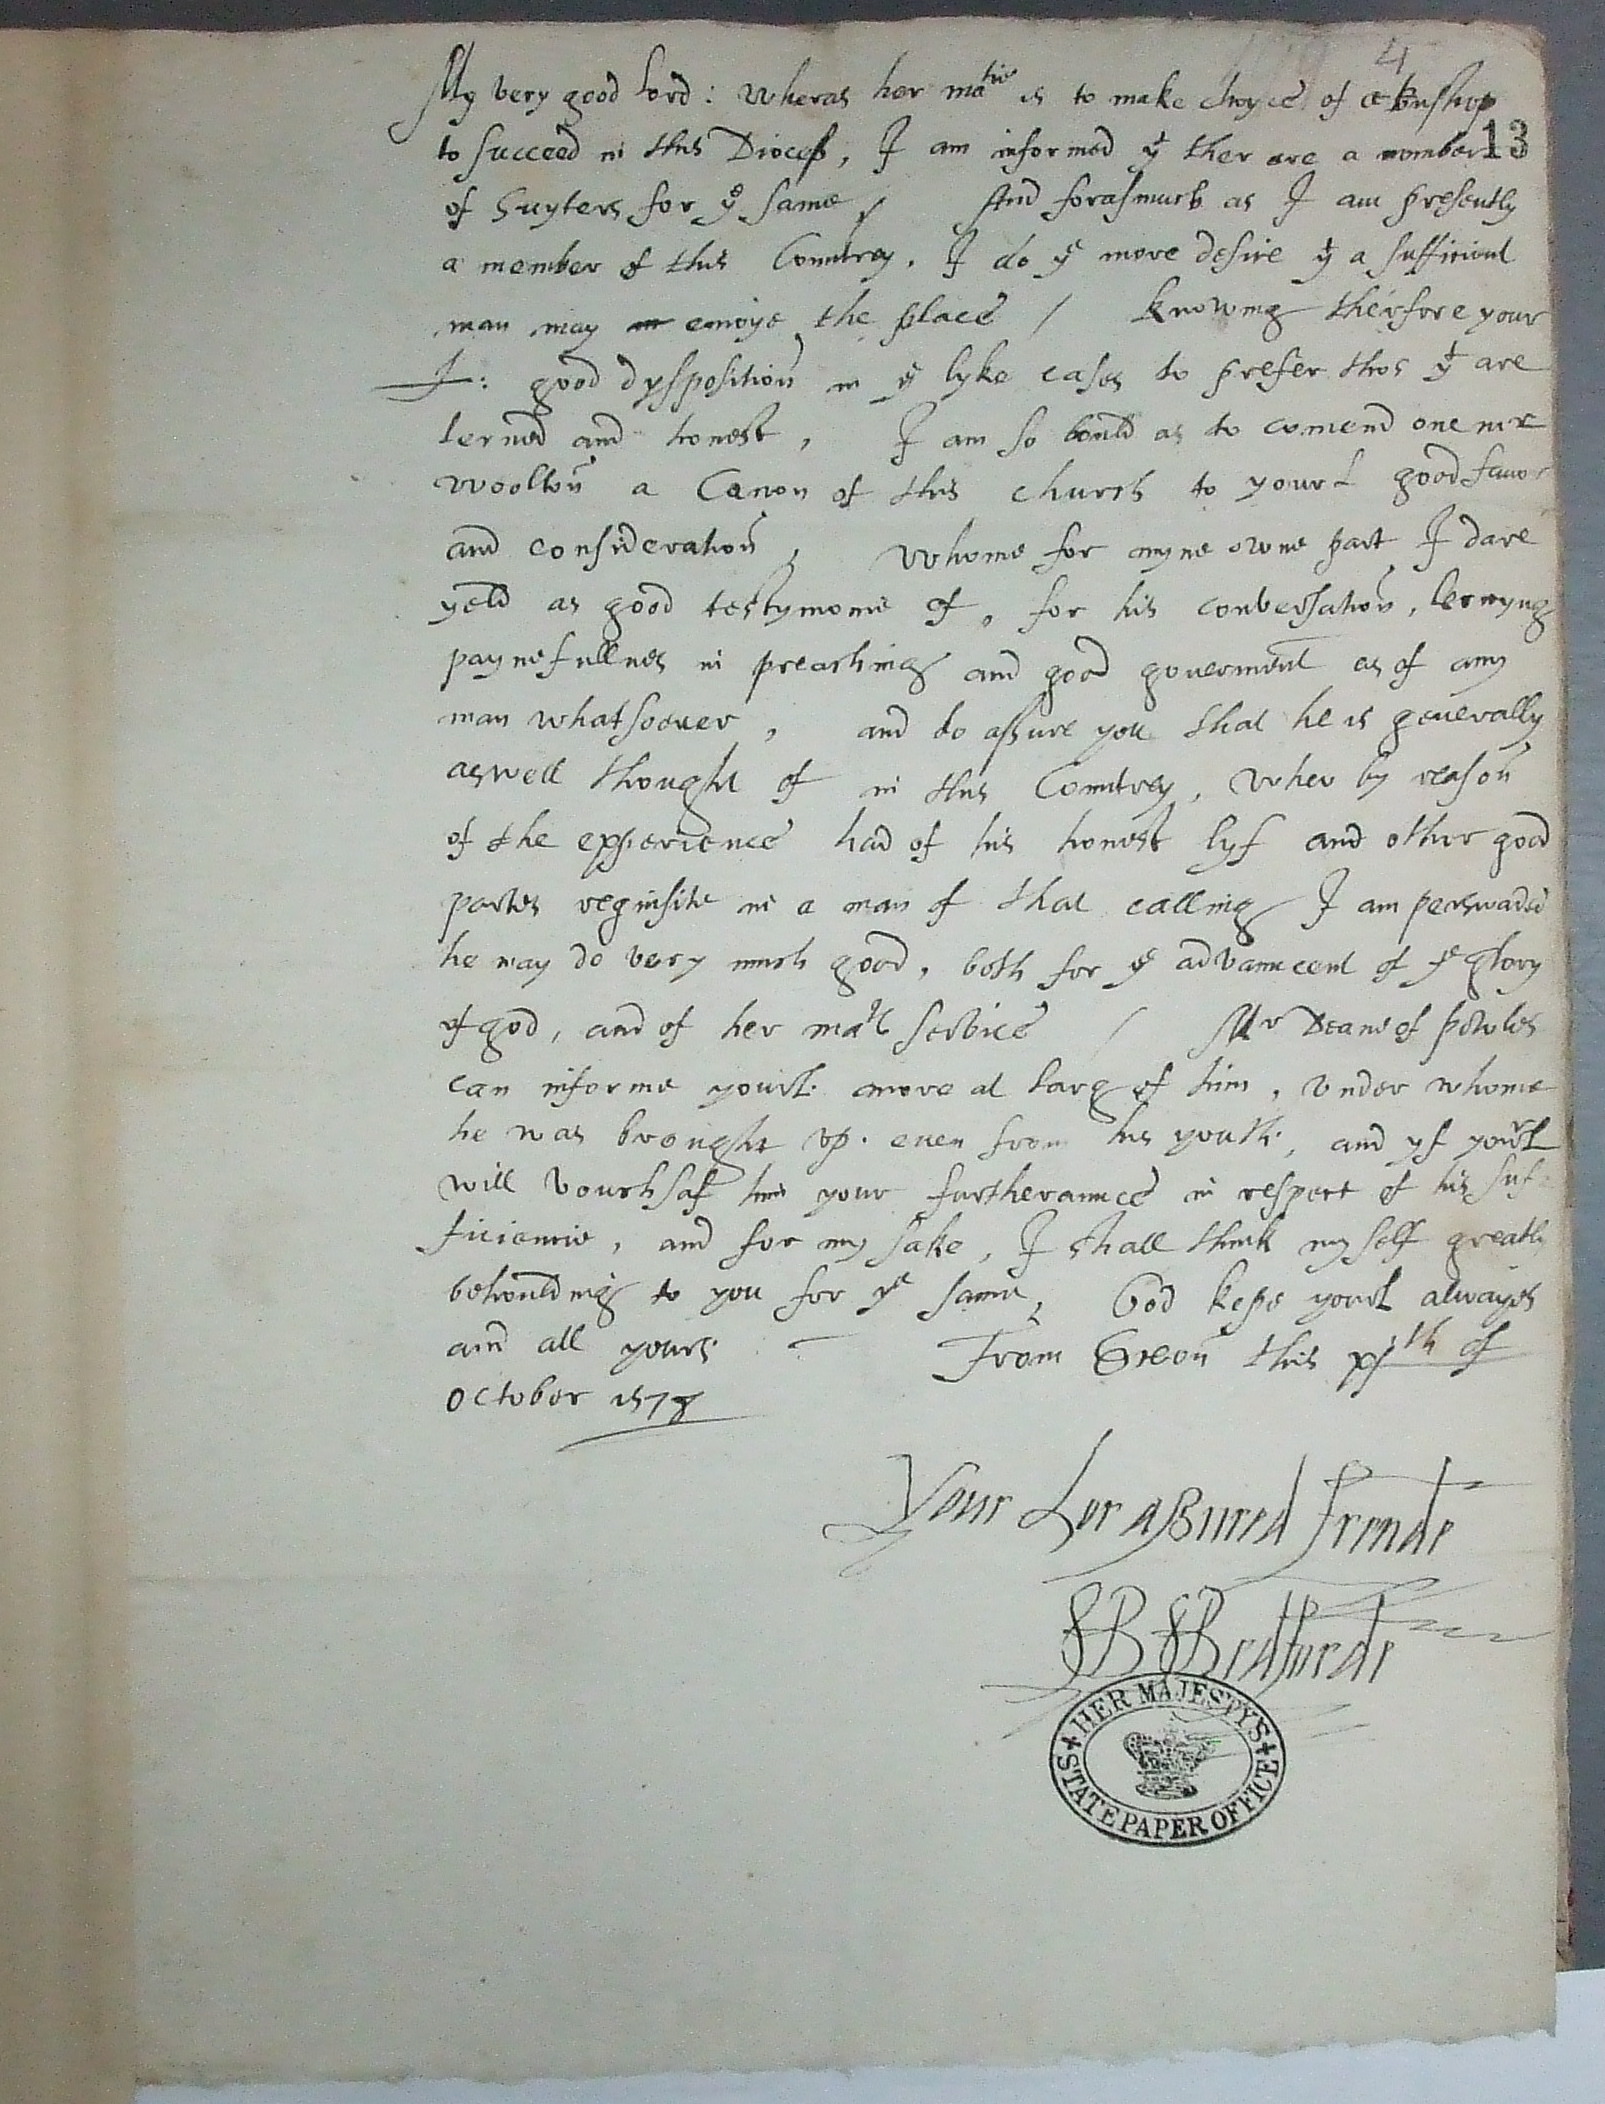 4
My very good Lord: wheras her matie is to make choyce of a busshop
13
to succeed in this Diocess, I am informed yt ther are a nomber
of suyters for ye same / And forasmuch as I am presently
a member of this Countrey. I do ye more desire yt a sufficient
man may enioye the place / knowing therfore your
L: good dysposition in ye lyke cases to prefer thos yt are
lerned and honest, I am so bould as to comend one mr
Woolton a Canon of this church to your L good favor
and consideration, Whome for myne owne part I dare
yeld as good testymonie of, for his conversation, lernyng
paynefullnes in preaching and good gouerment as of any
man whatsoeuer, and do assure you that he is generally
aswell thought of in this Countrey, wher by reason
of the experience had of his honest lyf and other good
partes requisite in a man of that calling I am perswaded
he may do very much good, both for ye advauncemt of ye glory
of god, and of her mats service / Mr Deane of powles
can informe your L. more at larg of him, vnder whome
he was brought vp. even from his youth, and yf your L
will vouchsaf him your furtheraunce in respect of his suf-
ficiencie, and for my sake, I shall think my self greatly
behoulding to you for ye same, God kepe your L alwayes
and all yours. From Exon this xjth of
October 1578
Your Lor assured frende
F Bedforde
HER MAJESTY'S
STATE PAPER OFFICE